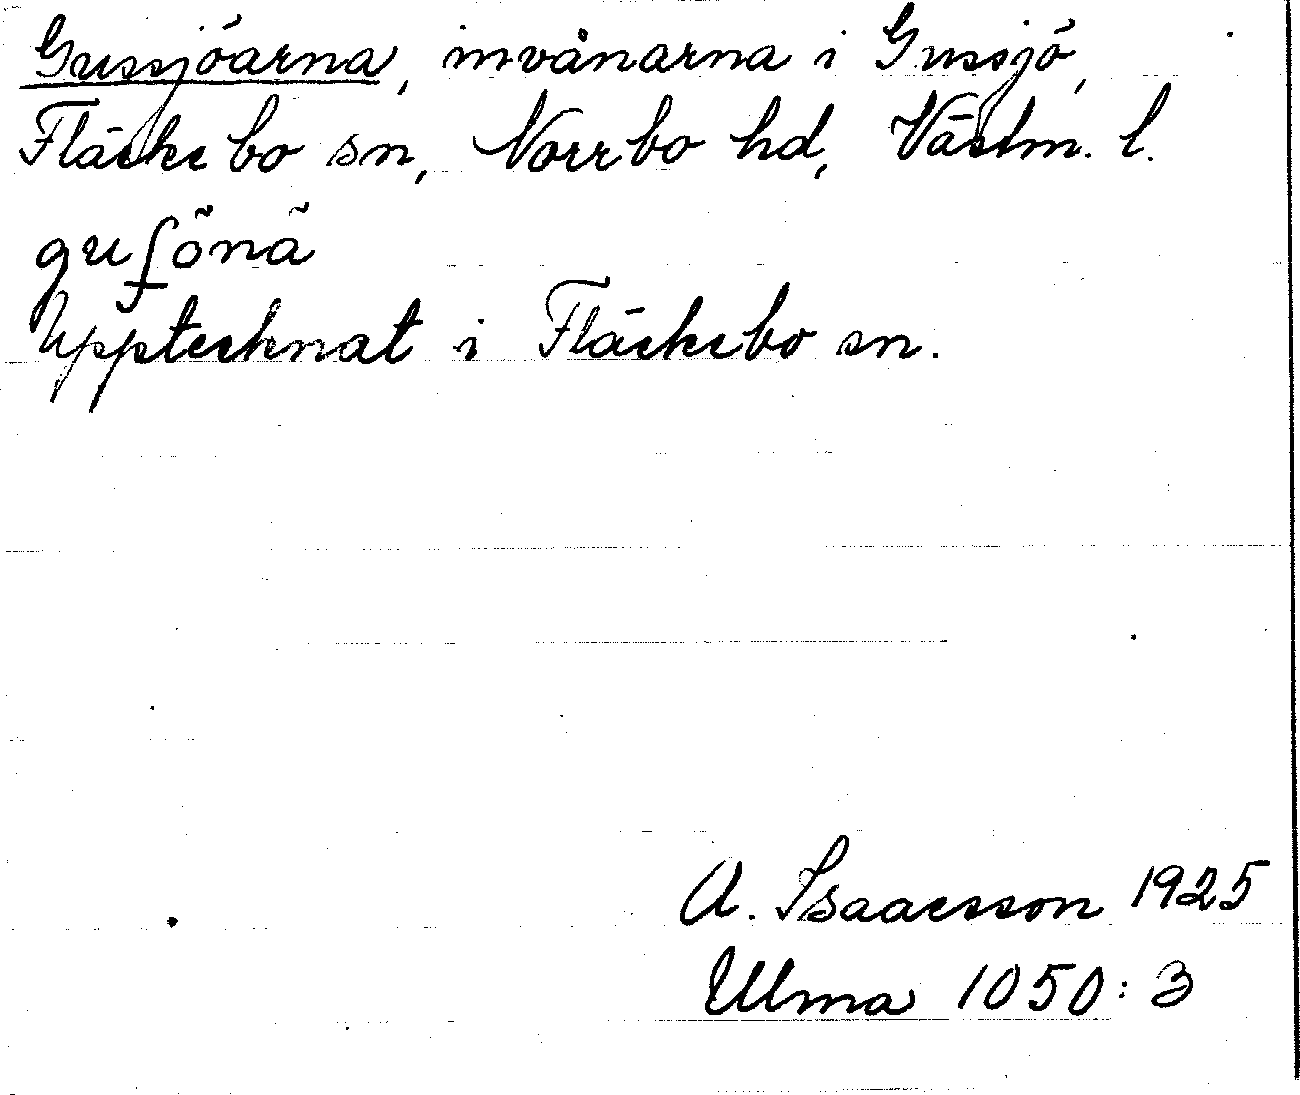 Gussjöarna, invånarna i Gussjö,
Fläckebo sn, Norrbo hd, Västm. l.
guʃõnã
Upptecknat i Fläckebo sn.
A. Isaacsson 1925
Ulma 1050:3